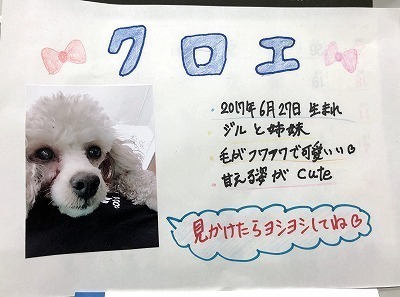 クロエ
・2017年6月27日 生まれ
・ジルと姉妹
・毛がフワフワで可愛いい
・甘える姿が cute
見かけたらヨシヨシしてね